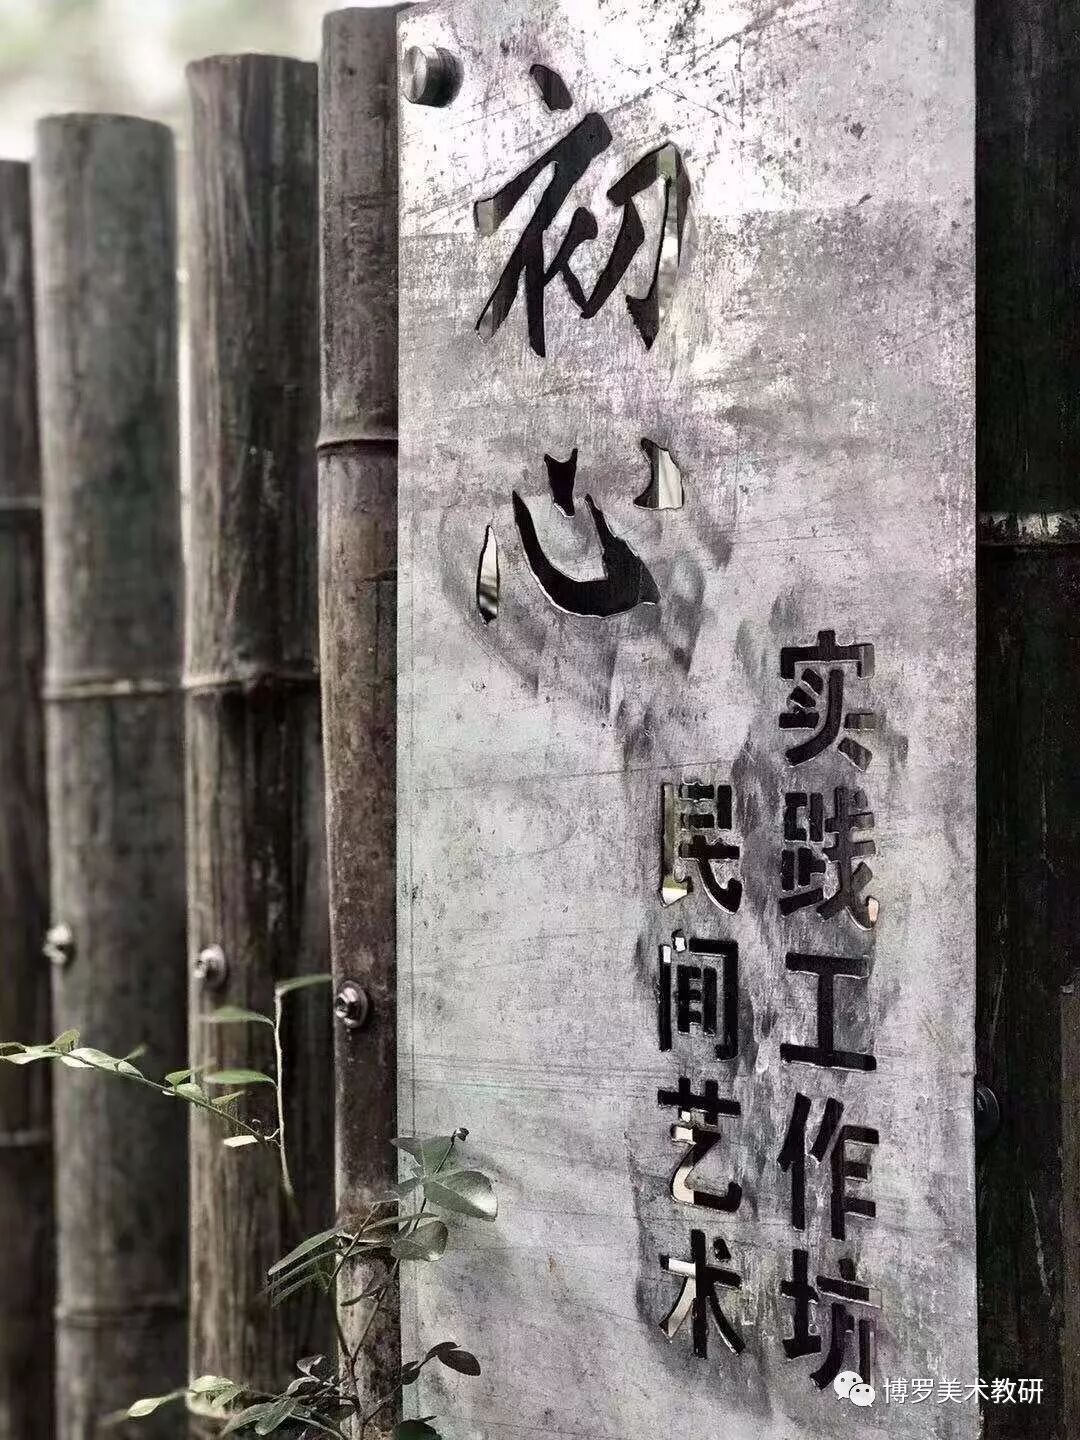 初心
民间艺术
实践工作坊
博罗美术教研